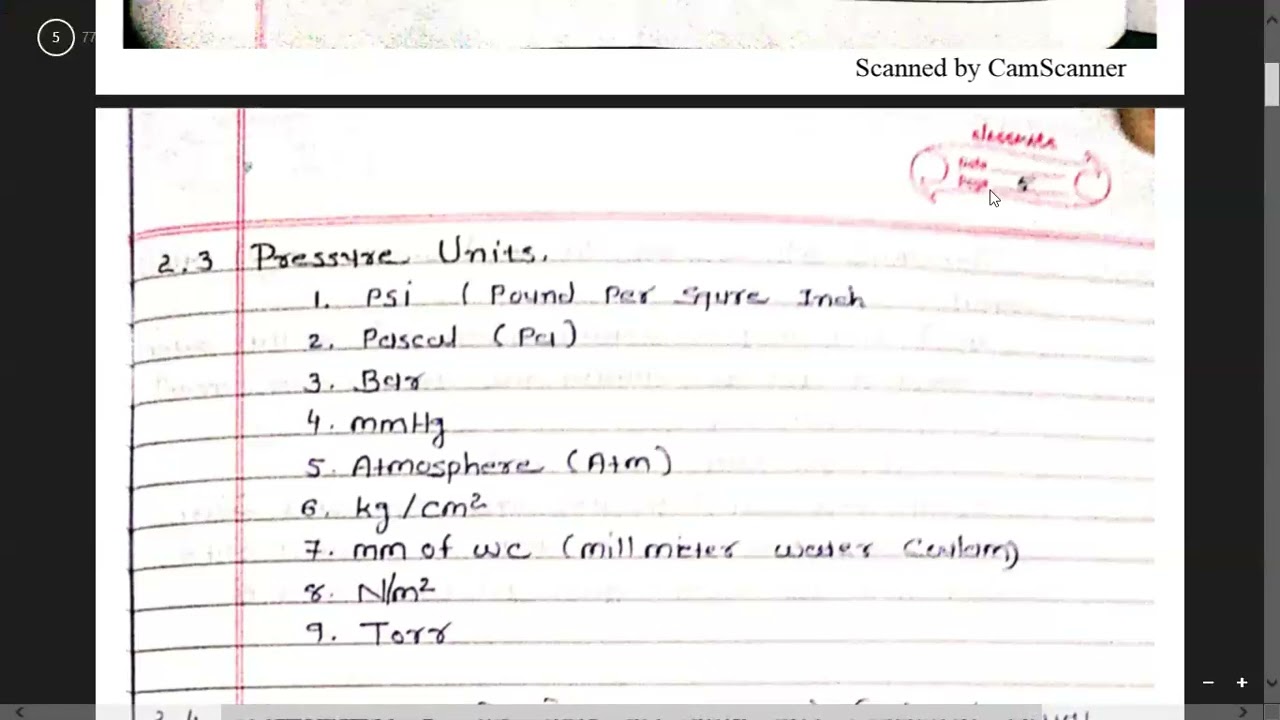 5 77
Scanned by CamScanner
5
2.3 Pressure Units.
1. Psi ( Pound Per Squre Inch
2. Pascal (Pa)
3. Bar
4. mmHg
5. Atmosphere (Atm)
6. kg/cm²
7. mm of wc (millmeter water
8. N/m²
9. Torr
2.4